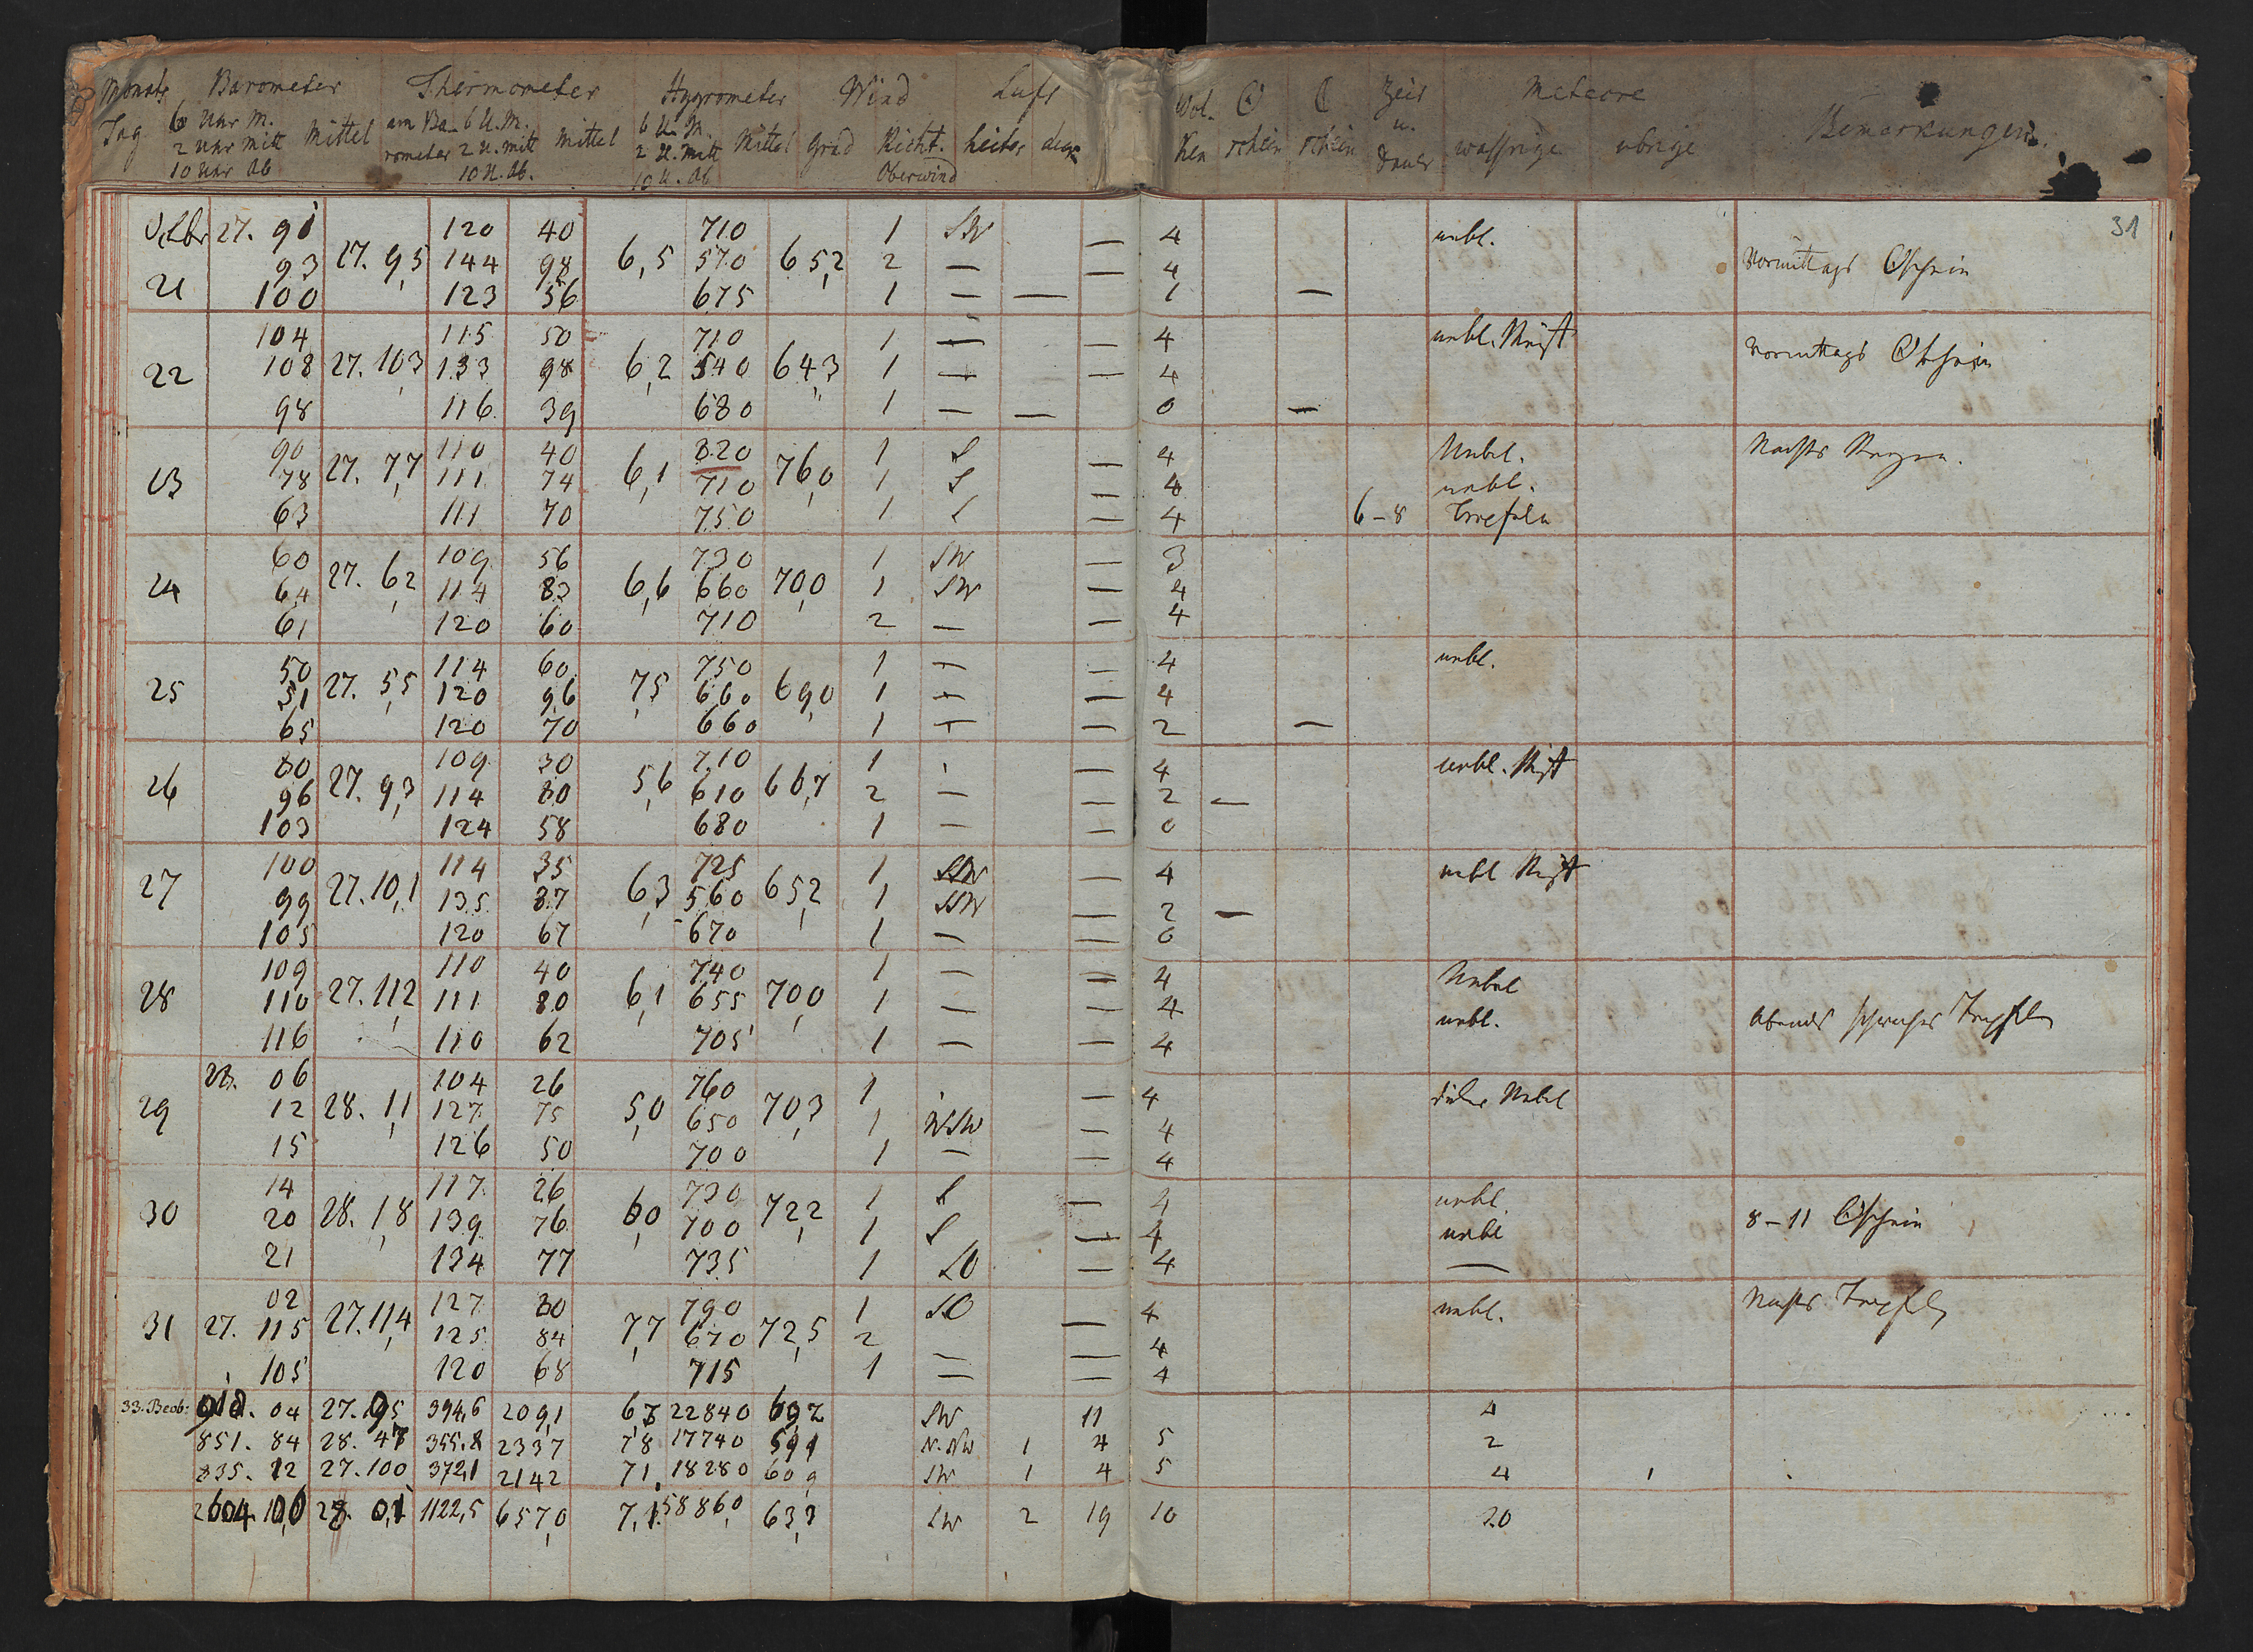 Monats Barometer Thermometer Hygrometer Wind Luft
Tag 6 Uhr M. Mittel am Ba- 6 U. M. Mittel 6 U. M. Mittel Grad Richt. heiter
2 Uhr Mitt rometer 2 U. mitt 2 U. Mitt
10 Uhr Ab 10 U. Ab. 10 U. Ab Oberwind
Wol- ☉ ☾ Zeit Meteore
ken schein schein u. Dauer wassrige ubrige Bemerkungen.
31
Octbr 27. 91 120 40 710 1 SW — 4 nebl.
21 93 27. 9,5 144 98 6,5 570 65,2 2 — — 4 Vormittags ☉schein
100 123 56 675 1 — — 1 —
104 115 50 710 1 — — 4 nebl.
22 108 27. 10,3 133 98 6,2 540 64,3 1 — — 4 Vormittags ☉schein
98 116 39 680 1 — — 0 —
90 110 40 820 1 S — 4 Nebel. Nachts Regen.
23 78 27. 7,7 111 74 6,1 710 76,0 1 S — 4 nebl.
63 111 70 750 1 S — 4 6–8 Tropfeln
60 109 56 730 1 SW — 3
24 64 27. 6,2 114 83 6,6 660 70,0 1 SW — 4
61 120 60 710 2 — — 4
50 114 60 750 1 — — 4 nebl.
25 51 27. 5,5 120 96 7,5 660 69,0 1 — — 4
65 120 70 660 1 — — 2 —
80 109 30 710 1 — 4 nebl.
26 96 27. 9,3 114 80 5,6 610 66,7 2 — — 2 —
103 124 58 680 1 — — 0
100 114 35 725 1 — 4 nebl
27 99 27. 10,1 135 87 6,3 560 65,2 1 SSW — 2 —
105 120 67 670 1 — — 0
109 110 40 740 1 — — 4 Nebel
28 110 27. 11,2 111 80 6,1 655 70,0 1 — — 4 nebl. Abends schwaches Tropfeln
116 110 62 705 1 — — 4
28. 06 104 26 760 1 — 4 dicker Nebel
29 12 28. 1,1 127 75 5,0 650 70,3 1 WSW — 4
15 126 50 700 1 — — 4
14 117 26 730 1 S — 4 nebl.
30 20 28. 1,8 139 76 6,0 700 72,2 1 S — 4 nebl 8–11 ☉schein
21 134 77 735 1 SO — 4 —
02 127 80 790 1 SO — 4 nebl. Nachts Tropfeln
31 27. 115 27. 11,4 125 84 7,7 670 72,5 2 4
105 120 68 715 1 — — 4
33. Beob: 04 27. 394,6 209,1 22840 SW 11 4
851. 84 28. 355,8 2337 7,8 17740 591 N. NW 1 4 5 2
835. 12 27. 100 372,1 2142 7,1 18280 60,9 SW 1 4 5 4 1
2604. 1122,5 657,0 7,1 58860 63,3 SW 2 19 10 20